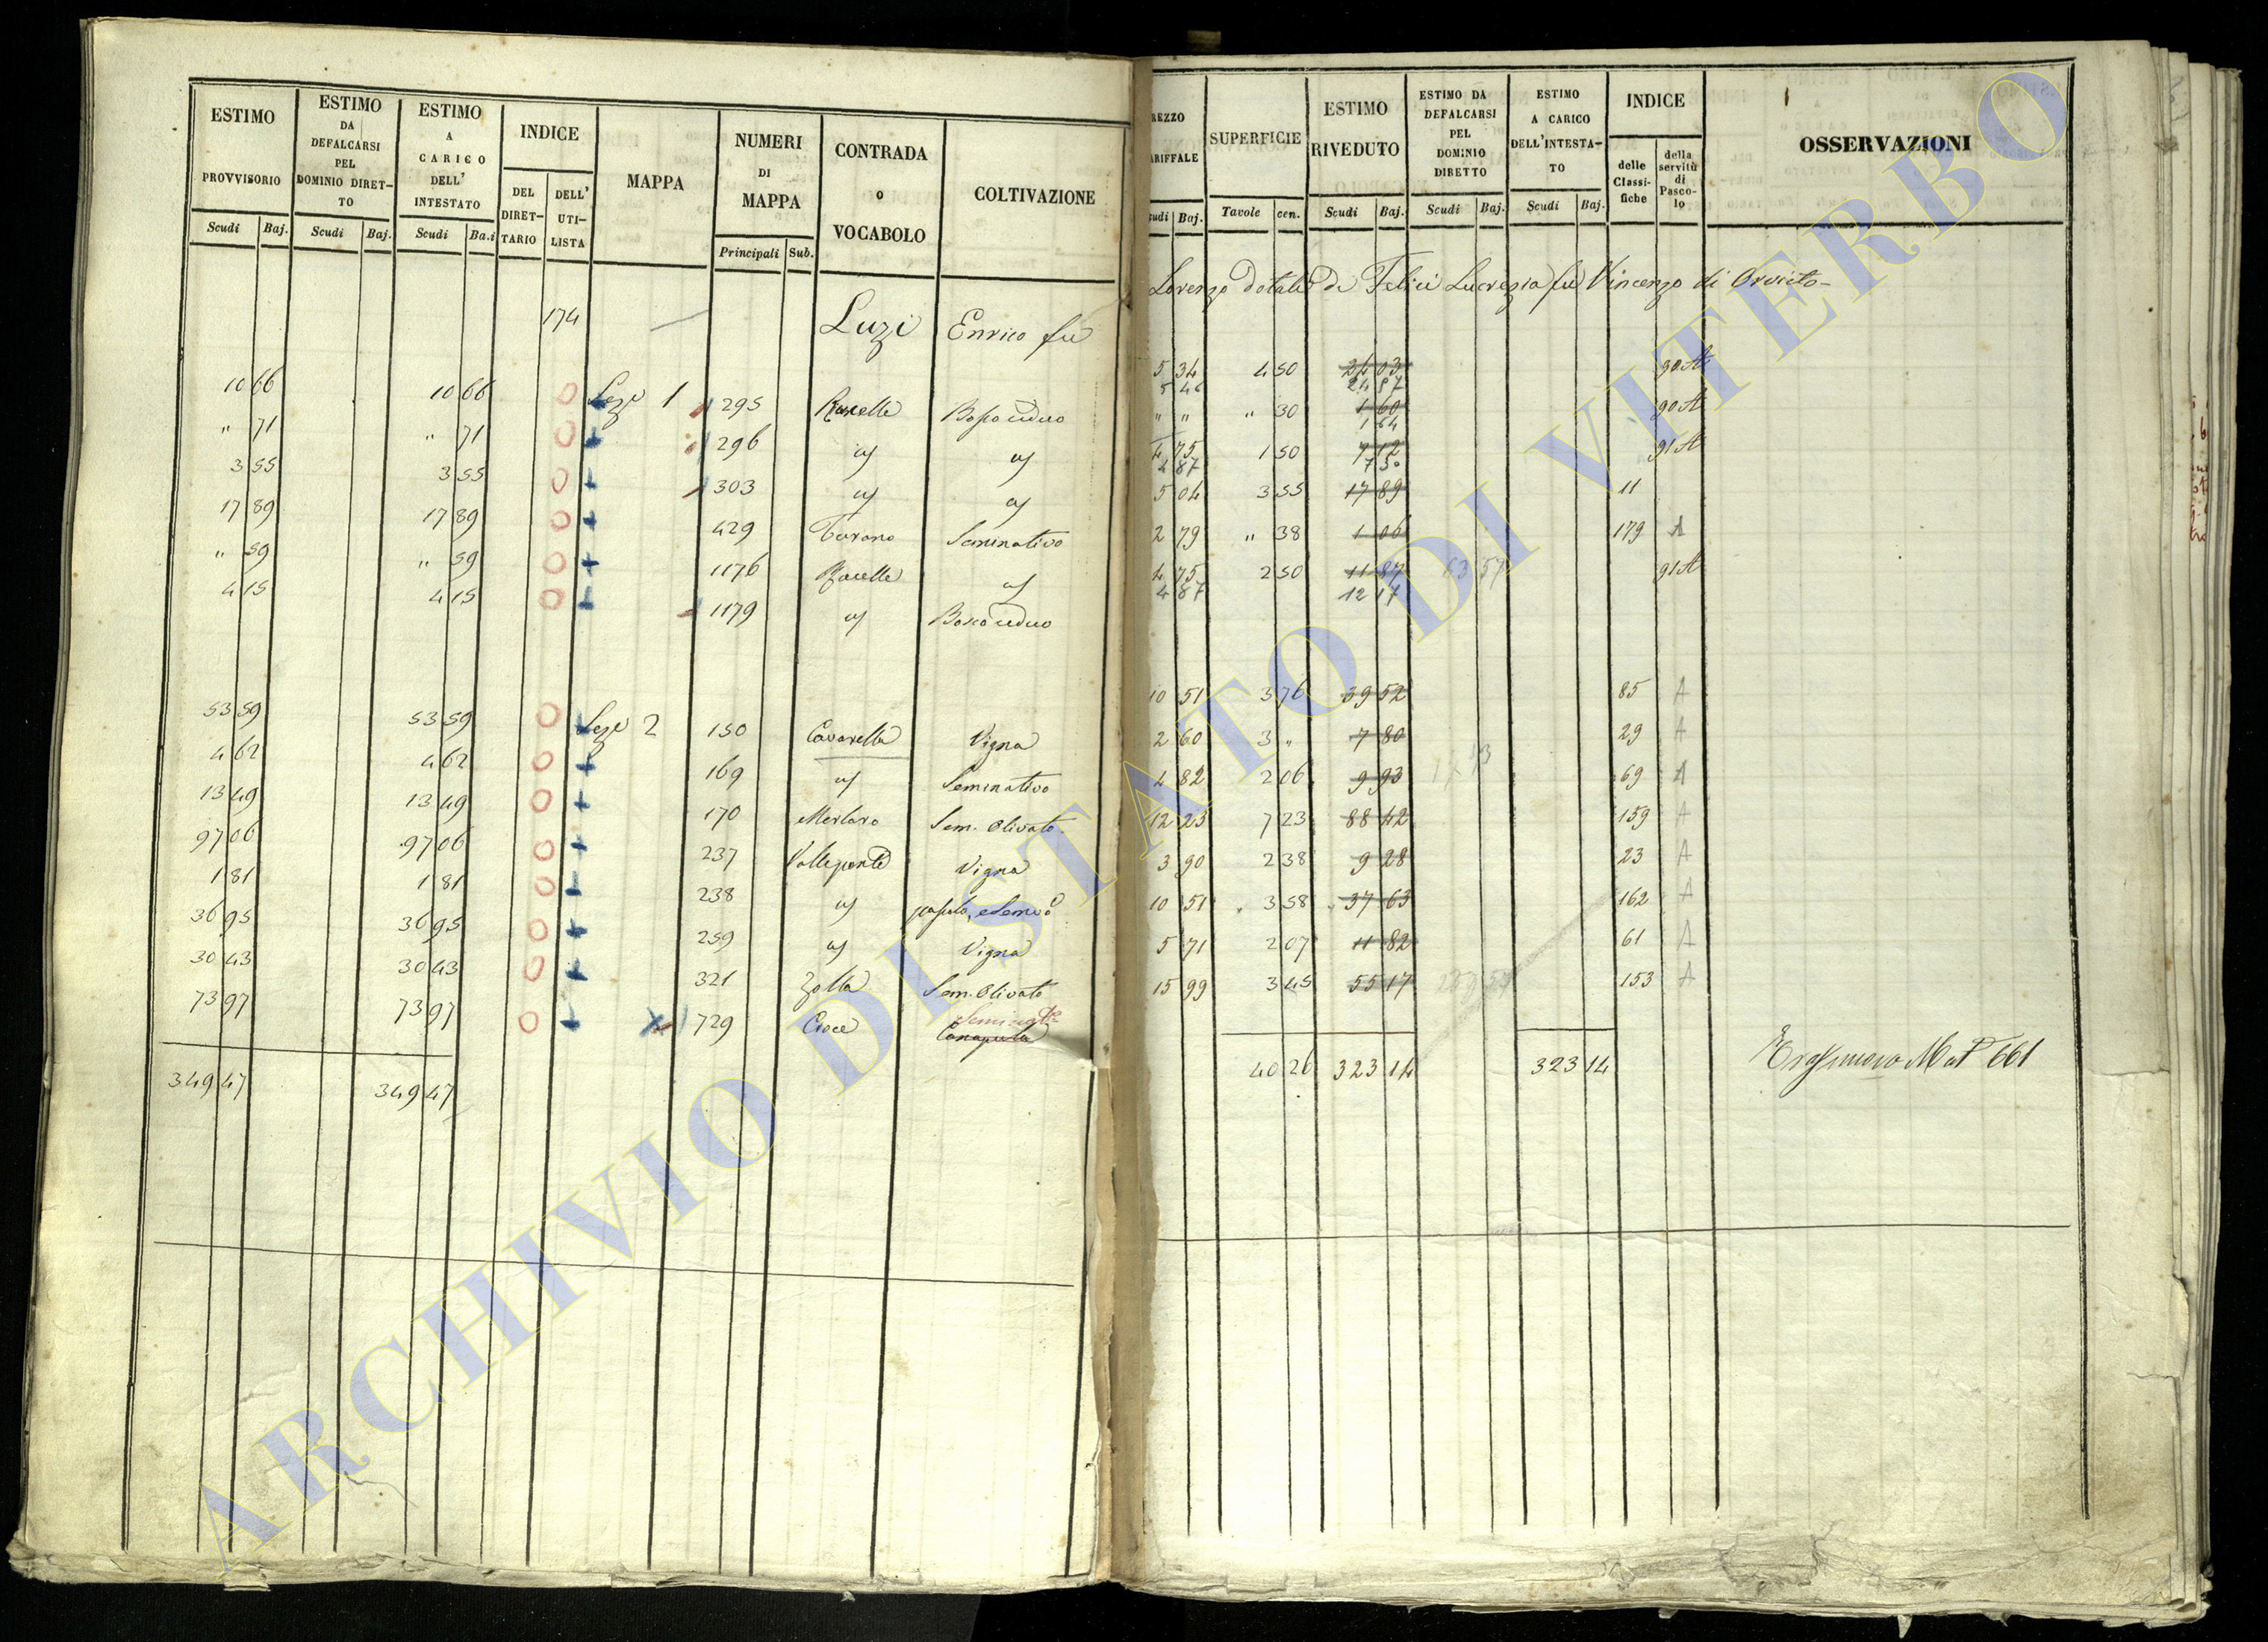 ESTIMO PROVVISORIO Scudi Baj.
ESTIMO DA DEFALCARSI PEL DOMINIO DIRET-TO Scudi Baj.
ESTIMO A CARICO DELL' INTESTATO Scudi Ba.i
INDICE DEL DIRET-TARIO DELL' UTI-LISTA
MAPPA
NUMERI DI MAPPA Principali Sub.
CONTRADA o VOCABOLO
COLTIVAZIONE
174 Luzi Enrico fu
10 66 10 66 Seze 1 295 Bosco ceduo
" 71 " 71 296
3 55 3 55 303
17 89 17 89 429 Seminativo
" 59 " 59 1176
4 15 4 15 1179 Bosco ceduo
53 59 53 59 Seze 2 150 Cavarella Vigna
4 62 4 62 169 Seminativo
13 49 13 49 170 Merlaro Sem. Olivato
97 06 97 06 237 Valleponte Vigna
1 81 1 81 238
36 95 36 95 259 Vigna
30 43 30 43 321 Zolla Sem. Olivato
73 97 73 97 729 Croce
349 47 349 47
REZZO ARIFFALE cudi Baj.
SUPERFICIE Tavole cen.
ESTIMO RIVEDUTO Scudi Baj.
ESTIMO DA DEFALCARSI PEL DOMINIO DIRETTO Scudi Baj.
ESTIMO A CARICO DELL'INTESTA-TO Scudi Baj.
INDICE delle Classi-fiche della servitù di Pasco-lo
OSSERVAZIONI
Lorenzo dotali di Felici Lucrezia fu Vincenzo di Orvieto
5 34 4 50 24 03 90 A
5 46 24 57
" " " 30 1 60 90 A
1 64
4 75 1 50 7 12 91 A
4 87 7 30
5 04 3 55 17 89 11
2 79 " 38 1 06 179 A
4 75 2 50 11 87 63 57 91 A
4 87 12 17
10 51 3 76 39 52 85 A
2 60 3 " 7 80 29 A
4 82 2 06 9 93 69 A
12 23 7 23 88 42 159 A
3 90 2 38 9 28 23 A
10 51 3 58 37 63 162 A
5 71 2 07 11 82 61 A
15 99 3 45 55 17 153 A
40 26 323 14 323 14 661
ARCHIVIO DI STATO DI VITERBO